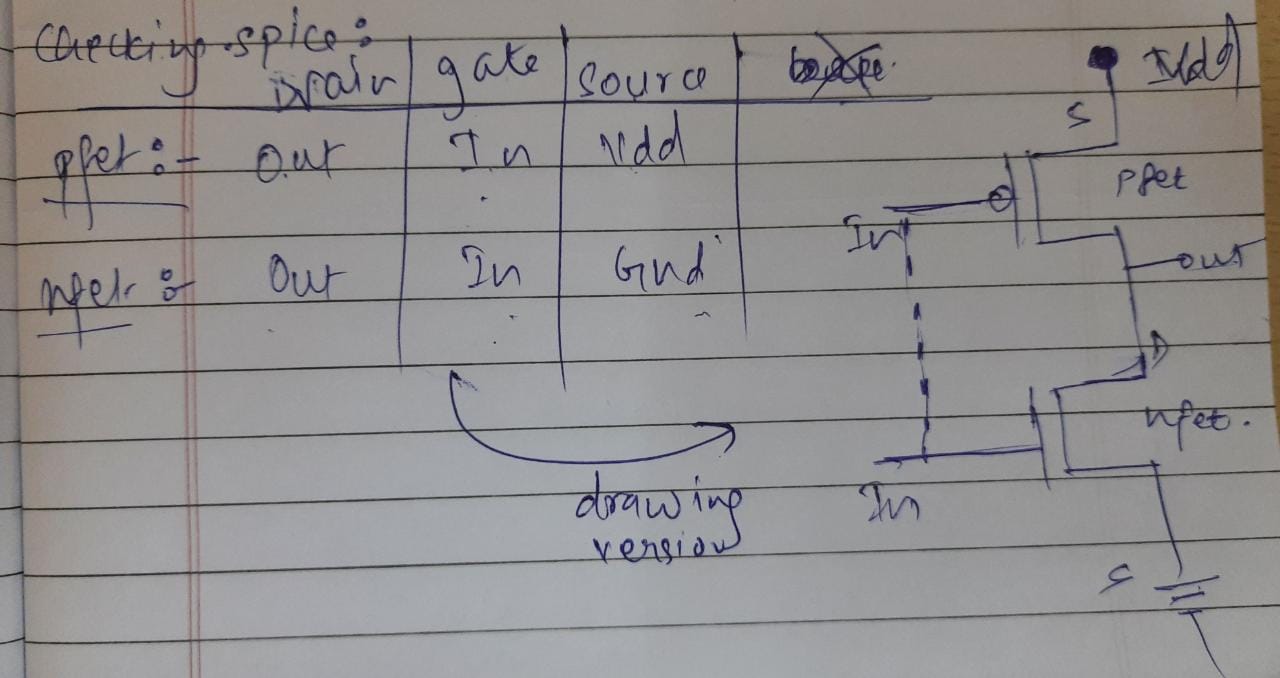 Checking spice:
Drain gate source
pfet :- Out In Vdd
nfet :- Out In Gnd
drawing
version
Vdd
S
pfet
In
out
D
nfet.
In
S